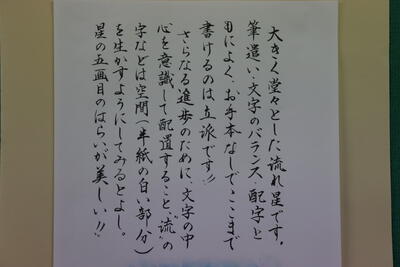 大きく堂々とした流れ星です。
筆遣い・文字のバランス・配字と
もによく、お手本なしでここまで
書けるのは立派です!!
さらなる進歩のために、文字の中
心を意識して配置すること“流”の
字などは空間(半紙の白い部分)
を生かすようにしてみるとよし。
星の五画目のはらいが美しい!!